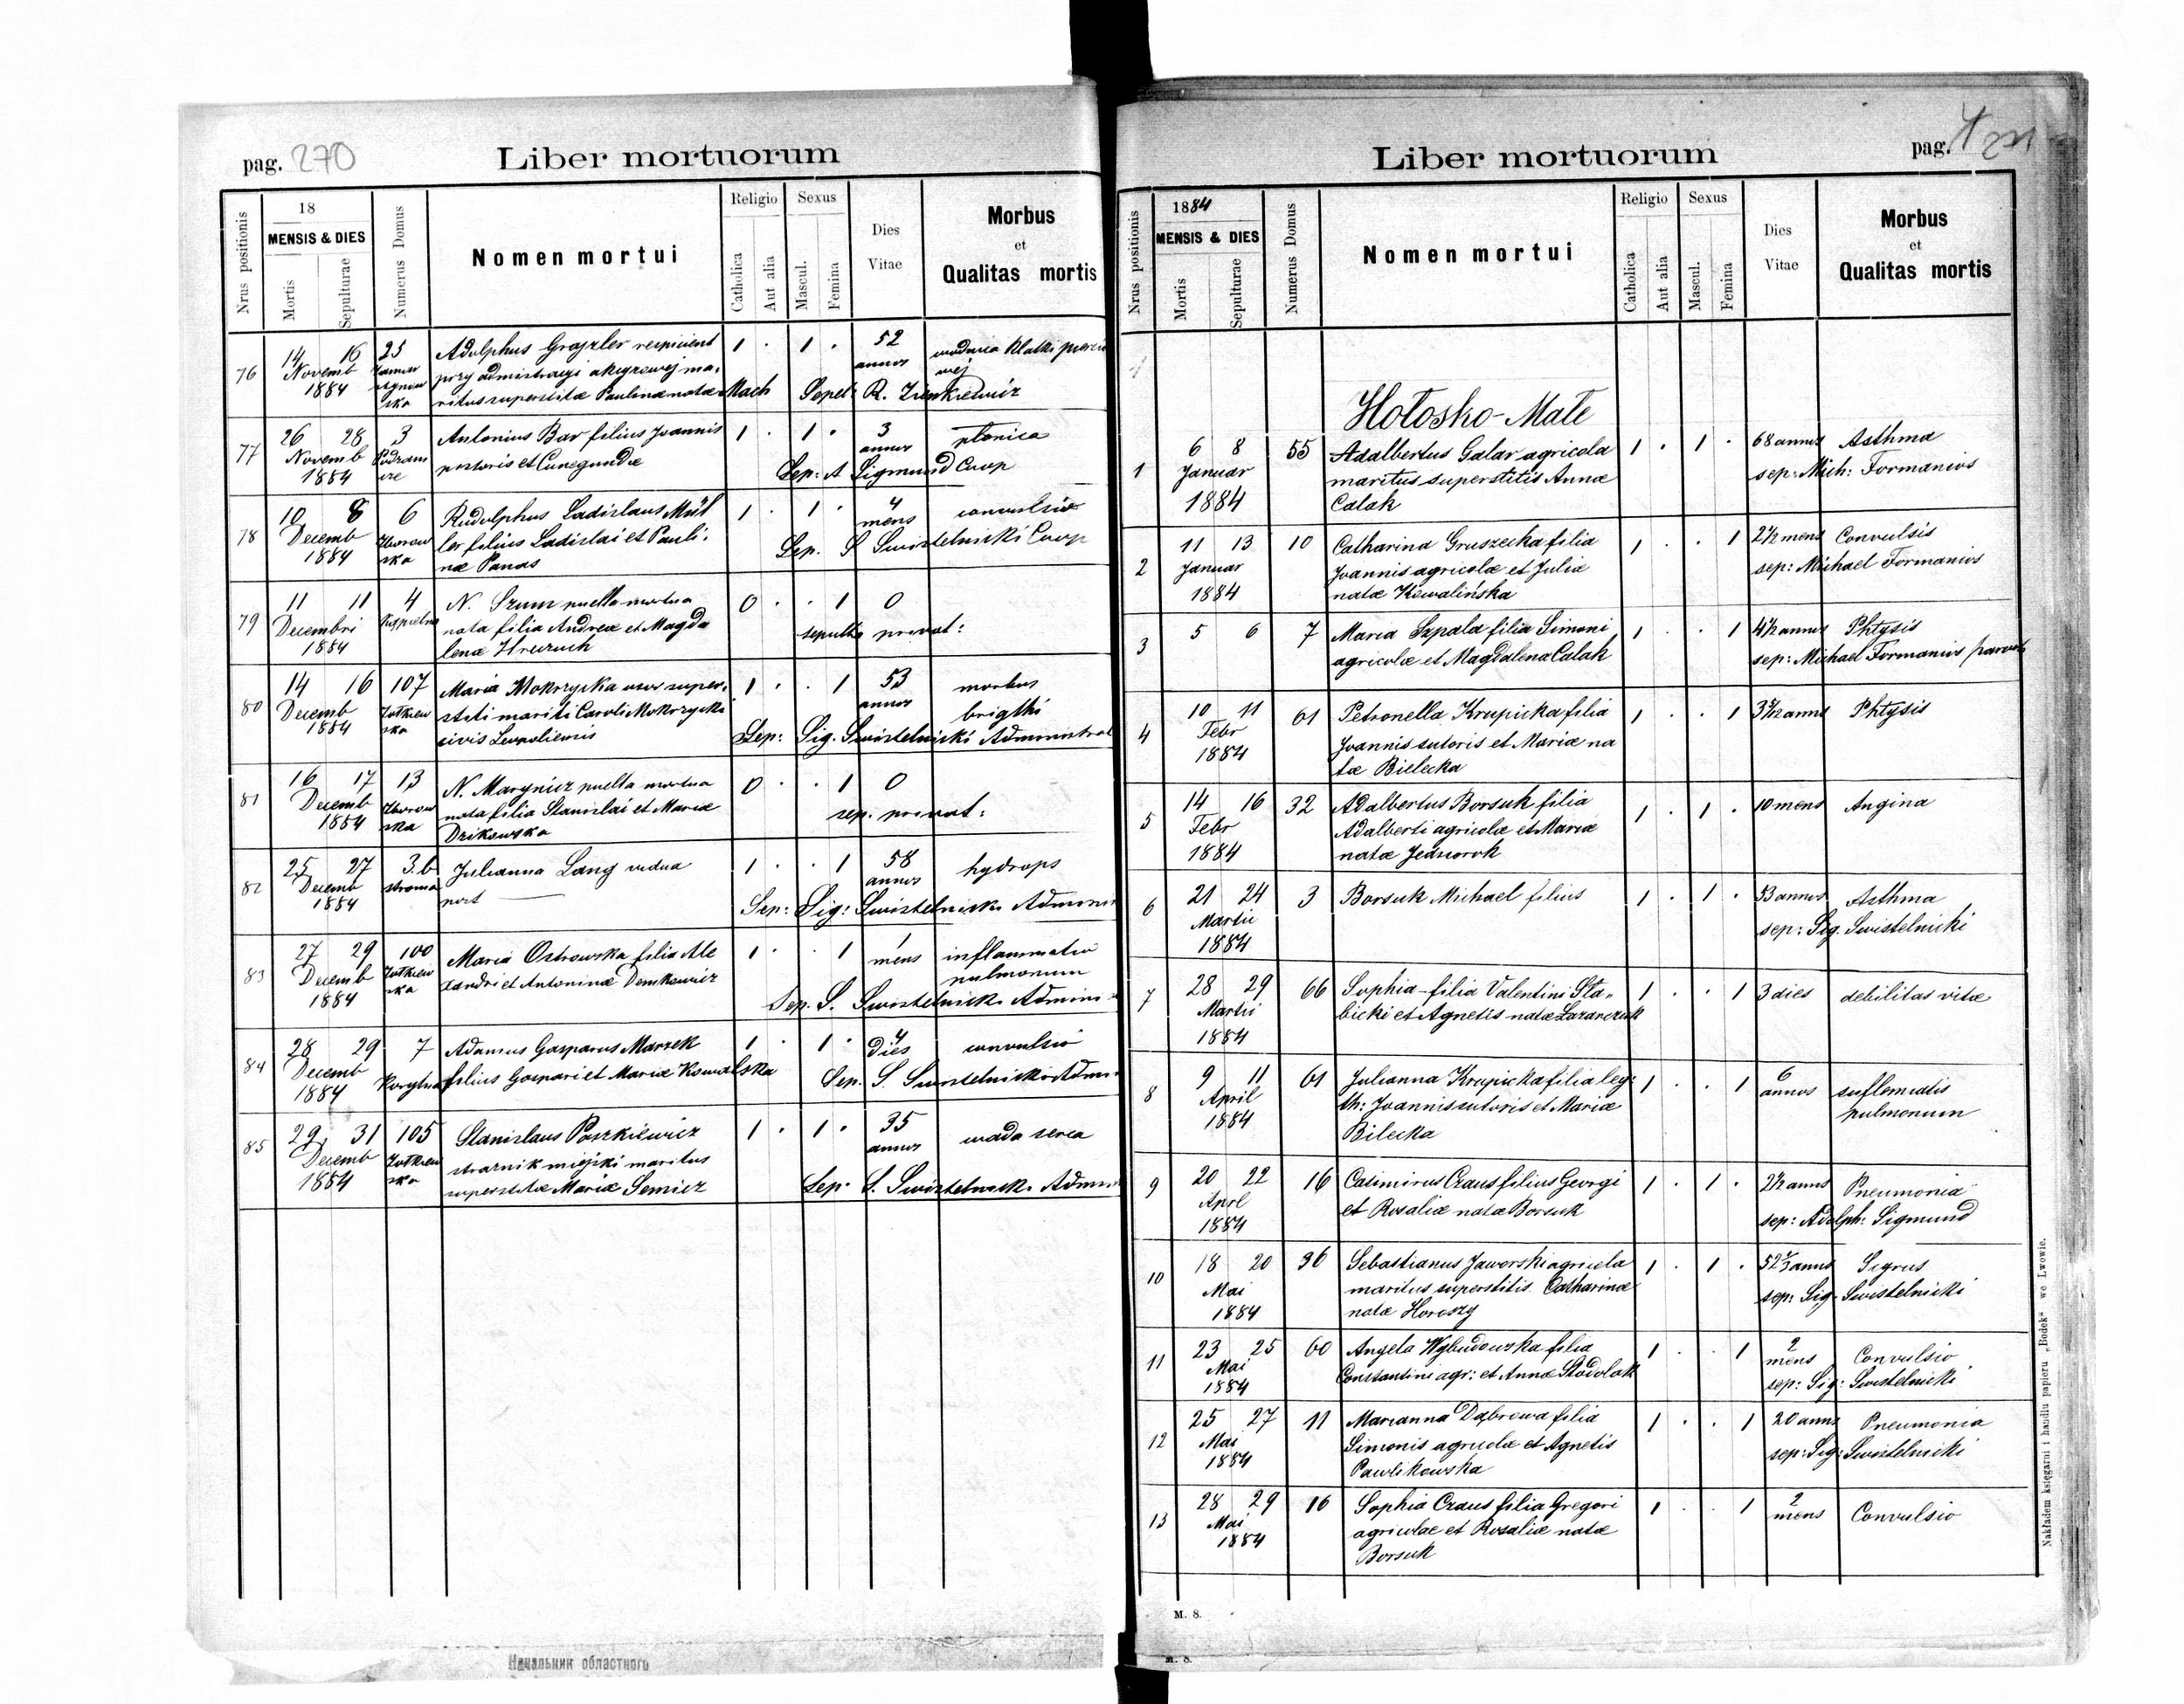 pag. 270
Liber mortuorum
Nrus positionis
18
MENSIS & DIES
Mortis
Sepulturae
Numerus Domus
Nomen mortui
Religio
Catholica
Aut alia
Sexus
Mascul.
Femina
Dies
Vitae
Morbus
et
Qualitas mortis
76 14 16 25 Adolphus 1 . 1 . 52
Novemb annos
1884 ritus superstitæ Paulinæ natæ Mach Sepel: R. Zienkiewicz
77 26 28 3 Antonius Bar filius Joannis 1 . 1 . 3
Novemb et Cunegundæ annos
1884 Sep: A Sigmund Coop
78 10 8 6 Rudolphus Ladislaus Mül 1 . 1 . 4 convulsio
Decemb Zborow ler filius Ladislai et Pauli- mens
1884 ska næ Panas Sep. S Swistelnicki Coop
79 11 11 4 N. Szum puella mortua 0 . . 1 0
Decembri nata filia Andreæ et Magda
1884 lenæ sepulta privat:
80 14 16 107 Maria Mokrzycka uxor super- 1 . . 1 53 morbus
Decemb Zołkiew stiti mariti Caroli Mokrzycki annos brigthi
1884 ska civis Leopoliensis Sep: Sig. Swistelnicki Administrat
81 16 17 13 N. Marynicz puella mortua 0 . . 1 0
Decemb Zborow nata filia Stanislai et Mariæ
1884 ska Dzikowska sep. privat:
82 25 27 3.b Julianna Lang vidua 1 . . 1 58 hydrops
Decemb annos
1884 Sep: Sig: Swistelnicki
83 27 29 100 Maria Ostrowska filia Ale 1 . . 1 1 inflammatio
Decemb Zołkiew xandri et Antoninæ Demkowicz mens pulmonum
1884 ska Sep. S. Swistelnicki
84 28 29 7 Adamus Gasparus Marzek 1 . 1 . 4 convulsio
Decemb filius Gaspari et Mariæ Kowalska dies
1884 Sep. S. Swistelnicki
85 29 31 105 Stanislaus Paszkiewicz 1 . 1 . 35 wada serca
Decemb Zołkiew strażnik miejski maritus annos
1884 ska superstitæ Mariæ Semicz Sep. S. Swistelnicki
Начальник областного
pag.
Liber mortuorum
Nrus positionis
1884
MENSIS & DIES
Mortis
Sepulturae
Numerus Domus
Nomen mortui
Religio
Catholica
Aut alia
Sexus
Mascul.
Femina
Dies
Vitae
Morbus
et
Qualitas mortis
Hołosko-Małe
1 6 8 55 Adalbertus Galar agricola 1 . 1 . 68 annos Asthma
Januar maritus superstitis Annæ sep: Mich: Formanios
1884 Calak
2 11 13 10 Catharina Gruszecka filia 1 . . 1 2½ mens Convulsis
Januar Joannis agricolæ et Juliæ sep: Michael Formanios
1884 natæ Kowalińska
3 5 6 7 Maria Szpala filia Simoni 1 . . 1 4½ annos Phtysis
agricolæ et Magdalena Calak sep: Michael Formanios
4 10 11 61 Petronella Krupicka filia 1 . . 1 Phtysis
Febr Joannis sutoris et Mariæ na
1884 tæ Bielecka
5 14 16 32 Adalbertus Borsuk filia 1 . 1 . 10 mens Angina
Febr Adalberti agricolæ et Mariæ
1884 natæ
6 21 24 3 Borsuk Michael filius 1 . 1 . 53 annos Asthma
Martii sep: Sig. Swistelnicki
1884
7 28 29 66 Sophia filia Valentini Sta- 1 . . 1 3 dies debilitas vitæ
Martii bicki et Agnetis natæ Lazarczuk
1884
8 9 11 61 Julianna Krupicka filia leg: 1 . . 1 6
April th: Joannis sutoris et Mariæ annos pulmonum
1884 Bilecka
9 20 22 16 Casimirus Craus filius Georgi 1 . 1 . 2½ anns Pneumonia
Aprl et Rosaliæ natæ Borsuk sep: Adolph: Sigmund
1884
10 18 20 36 Sebastianus Jaworski agricola 1 . 1 .
Mai maritus superstitis Catharinæ sep: Sig. Swistelnicki
1884 natæ Horoszy
11 23 25 60 Angela Wybudowska filia 1 . . 1 2 Convulsio
Mai Constantini agr: et Annæ Stodolak mens
1884 sep: Sig: Swistelnicki
12 25 27 11 Marianna Dąbrowa filia 1 . . 1 20 anns Pneumonia
Mai Simonis agricolæ et Agnetis sep: Sig: Swistelnicki
1884 Pawlikowska
13 28 29 16 Sophia Craus filia Gregori 1 . . 1 2 Convulsio
Mai agricolae et Rosaliæ natæ mens
1884 Borsuk
Nakładem księgarni i handlu papieru „Bodek“ we Lwowie.
M. 8.
M. 8.